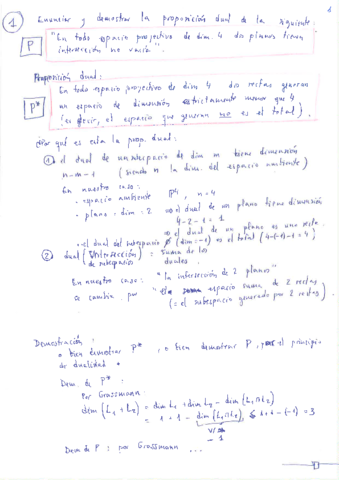 1
① Enunciar y demostrar la proposición dual de la siguiente:
P "En todo espacio proyectivo de dim. 4 dos planos tienen
intersección no vacía".
Proposición dual:
P* En todo espacio proyectivo de dim 4 dos rectas generan
un espacio de dimensión estrictamente menor que 4
(es decir, el espacio que generan no es el total).
¿Por qué es esta la prop. dual:
① el dual de un subespacio de dim m tiene dimensión
n-m-1 (siendo n la dim. del espacio ambiente)
En nuestro caso:
· espacio ambiente P⁴, n=4
· plano: dim: 2 ⇒ el dual de un plano tiene dimensión
4-2-1=1
⇒ el dual de un plano es una recta.
· el dual del subespacio ∅ (dim=-1) es el total (4-(-1)-1=4)
② dual (intersección de subespacios) = suma de los duales.
En nuestro caso: "la intersección de 2 planos"
se cambia por "el espacio suma de 2 rectas
(= el subespacio generado por 2 rectas)
Demostración:
o bien demostrar P*, o bien demostrar P, y el principio
de dualidad.
Dem. de P*:
Por Grassmann:
dim (L₁+L₂) = dim L₁ + dim L₂ - dim (L₁∩L₂)
= 1 + 1 - dim (L₁∩L₂) ≤ 1+1-(-1) = 3
-1
Dem de P: por Grassmann ...